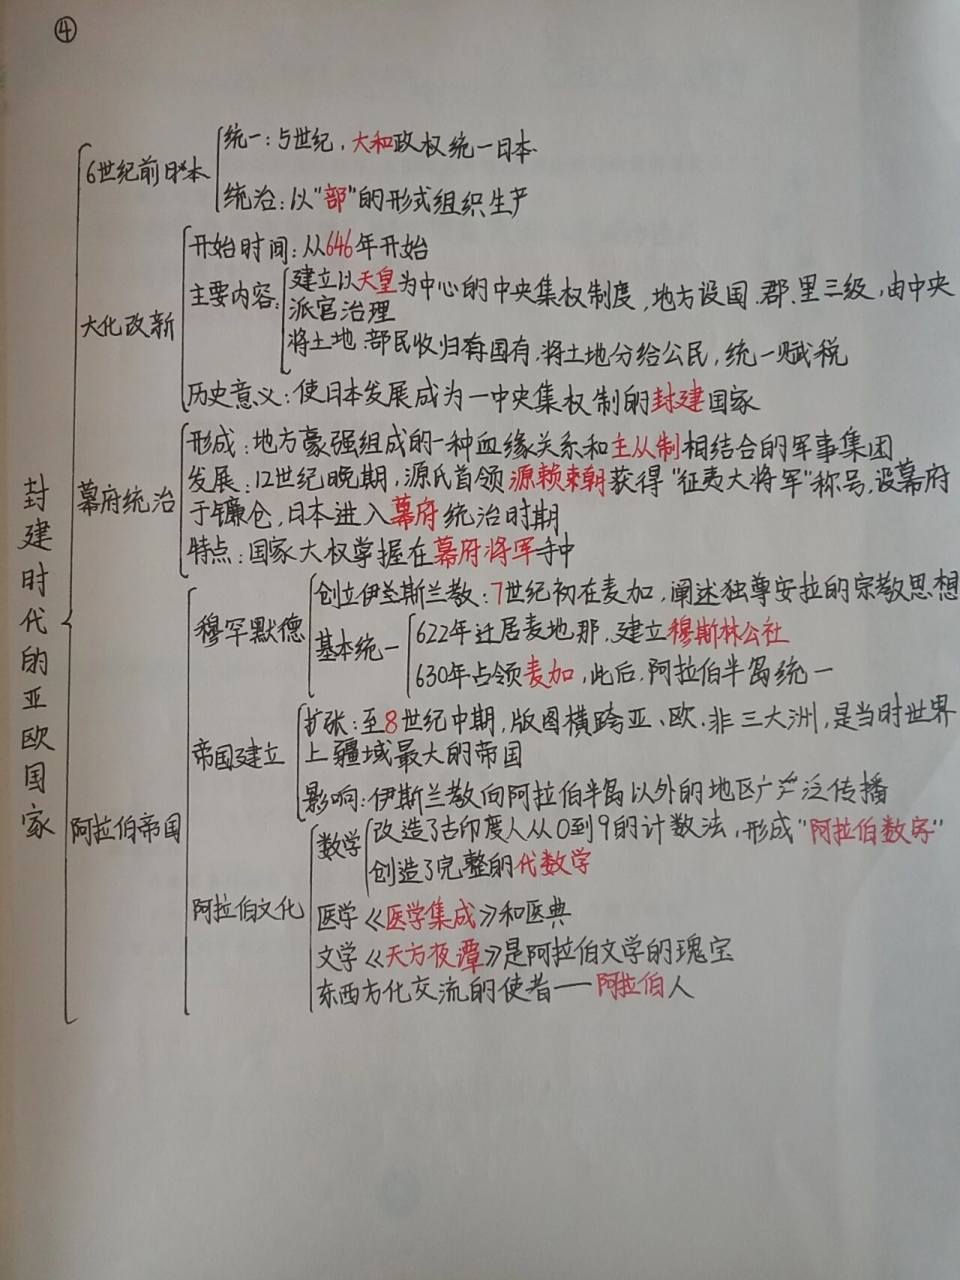 ④
6世纪前日本
统一：5世纪，大和政权统一日本
统治：以"部"的形式组织生产
大化改新
开始时间：从646年开始
主要内容：
建立以天皇为中心的中央集权制度，地方设国、郡、里三级，由中央
派官治理
将土地、部民收归国有，将土地分给公民，统一赋税
历史意义：使日本发展成为一中央集权制的封建国家
幕府统治
形成：地方豪强组成的一种血缘关系和主从制相结合的军事集团
发展：12世纪晚期，源氏首领源赖朝获得"征夷大将军"称号，设幕府
于镰仓，日本进入幕府统治时期
特点：国家大权掌握在幕府将军手中
封建时代的亚欧国家
阿拉伯帝国
穆罕默德
创立伊斯兰教：7世纪初在麦加，阐述独尊安拉的宗教思想
基本统一
622年迁居麦地那，建立穆斯林公社
630年占领麦加，此后，阿拉伯半岛统一
帝国建立
扩张：至8世纪中期，版图横跨亚、欧、非三大洲，是当时世界
上疆域最大的帝国
影响：伊斯兰教向阿拉伯半岛以外的地区广泛传播
阿拉伯文化
数学
改造了古印度人从0到9的计数法，形成"阿拉伯数字"
创造了完整的代数学
医学《医学集成》和医典
文学《天方夜谭》是阿拉伯文学的瑰宝
东西方化交流的使者——阿拉伯人